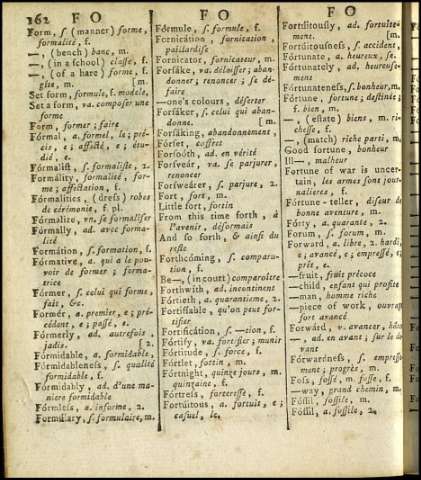 262 F O F O F O
Form, ſ. (manner) forme,
formalité, f.
—, (bench) banc, m.
—, (in a school) claſſe, f.
—, (of a hare) forme, f.
gîte, m. [m.
Set form, formule, f. modele,
Set a form, va. compoſer une
forme
Form, former; faire
Fórmal, a. formel, le; pré-
cis, e; affecté, e; étu-
dié, e.
Fórmaliſt, ſ. formaliſte, 2.
Formálity, formalité, for-
me; affectation, f.
Formálities, (dreſs) robes
de cérémonie, f. pl.
Fórmalize, vn. ſe formaliſer
Fórmally, ad. avec forma-
lité
Formátion, ſ. formation, f.
Fórmative, a. qui a le pou-
voir de former; forma-
trice
Fórmer, ſ. celui qui forme,
fait, &c.
Formér, a. premier, e; pré-
cédent, e; paſſé, e.
Fórmerly, ad. autrefois,
jadis. [2.
Fórmidable, a. formidable,
Fórmidableneſs, ſ. qualité
formidable, f.
Fórmidably, ad. d'une ma-
niere formidable
Fórmleſs, a. informe, 2.
Formúlary, ſ. formulaire, m.
Fórmule, ſ. formule, f.
Fornicátion, fornication,
paillardiſe
Fornicator, fornicateur, m.
Forſáke, va. délaiſſer; aban-
donner; renoncer; ſe dé-
faire
—one's colours, déſerter
Forſáker, ſ. celui qui aban-
donne. [m.
Forſáking, abandonnement,
Fórſet, coffret
Forſoóth, ad. en vérité
Forſweár, va. ſe parjurer,
renoncer
Forſweárer, ſ. parjure, 2.
Fort, fort, m.
Little fort, fortin
From this time forth, à
l'avenir, déſormais
And ſo forth, & ainſi du
reſte
Forthcóming, ſ. comparu-
tion, f.
Be—, (in court) comparoître
Forthwith, ad. incontinent
Fórtieth, a. quarantieme, 2.
Fortifiable, qu'on peut for-
tifier
Fortificátion, ſ. —tion, f.
Fórtify, va. fortifier; munir
Fórtitude, ſ. force, f.
Fórtlet, fortin, m.
Fórtnight, quinze jours, m.
quinzaine, f.
Fórtreſs, fortereſſe, f.
Fortúitous, a. fortuit, e;
caſuel, le.
Fortúitouſly, ad. fortuite-
ment. [m.
Fortúitouſneſs, ſ. accident,
Fórtunate, a. heureux, ſe.
Fórtunately, ad. heureuſe-
ment
Fórtunateneſs, ſ. bonheur, m.
Fórtune, fortune; deſtinée;
f. bien, m.
—, (eſtate) biens, m. ri-
cheſſe, f.
—, (match) riche parti, m.
Good fortune, bonheur
Ill—, malheur
Fortune of war is uncer-
tain, les armes ſont jour-
nalieres, f.
Fórtune-teller, diſeur de
bonne aventure, m.
Fórty, a. quarante, 2.
Forum, ſ. forum, m.
Forward, a. libre, 2. hardi,
e; avancé, e; empreſſé, e;
prêt, e.
—fruit, fruit précoce
—child, enfant qui profite
—man, homme riche
—piece of work, ouvrage
fort avancé
Forwárd, v. avancer, hâ-
—, ad. en avant; ſur le de-
vant
Fórwardneſs, ſ. empreſſe-
ment; progrès, m.
Foſs, foſſé, m. foſſe, f.
—way, grand chemin, m.
Fóſſil, foſſile, m.
Fóſſil, a. foſſile, 2.